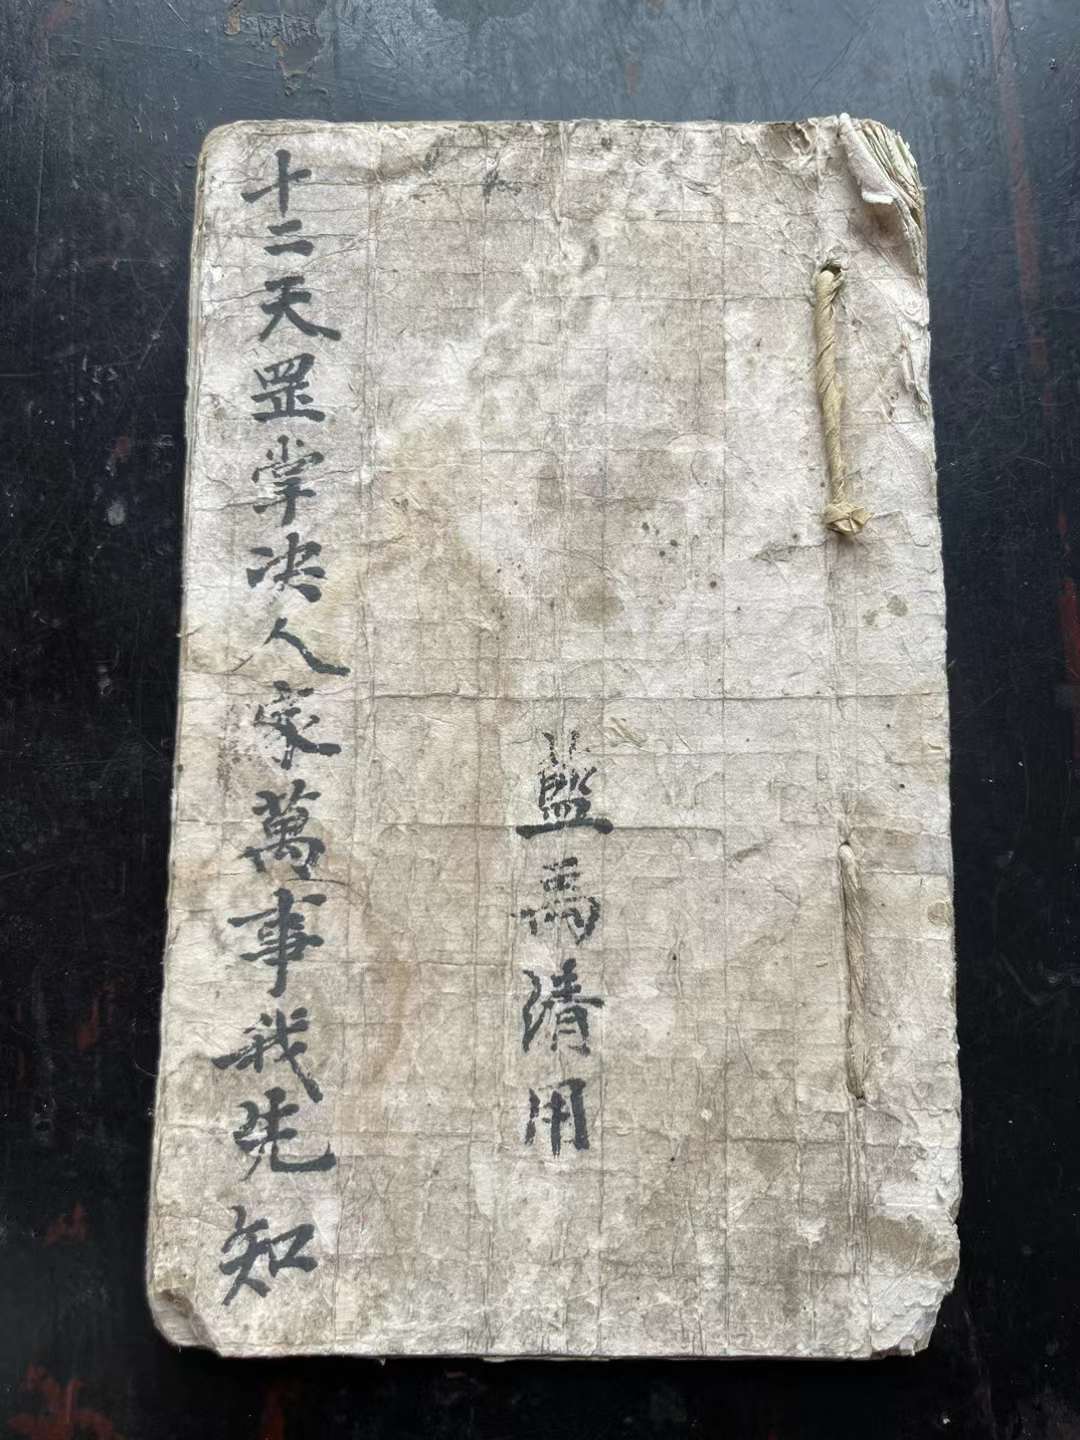 藍馬清用
十二天罡掌决人家萬事我先知